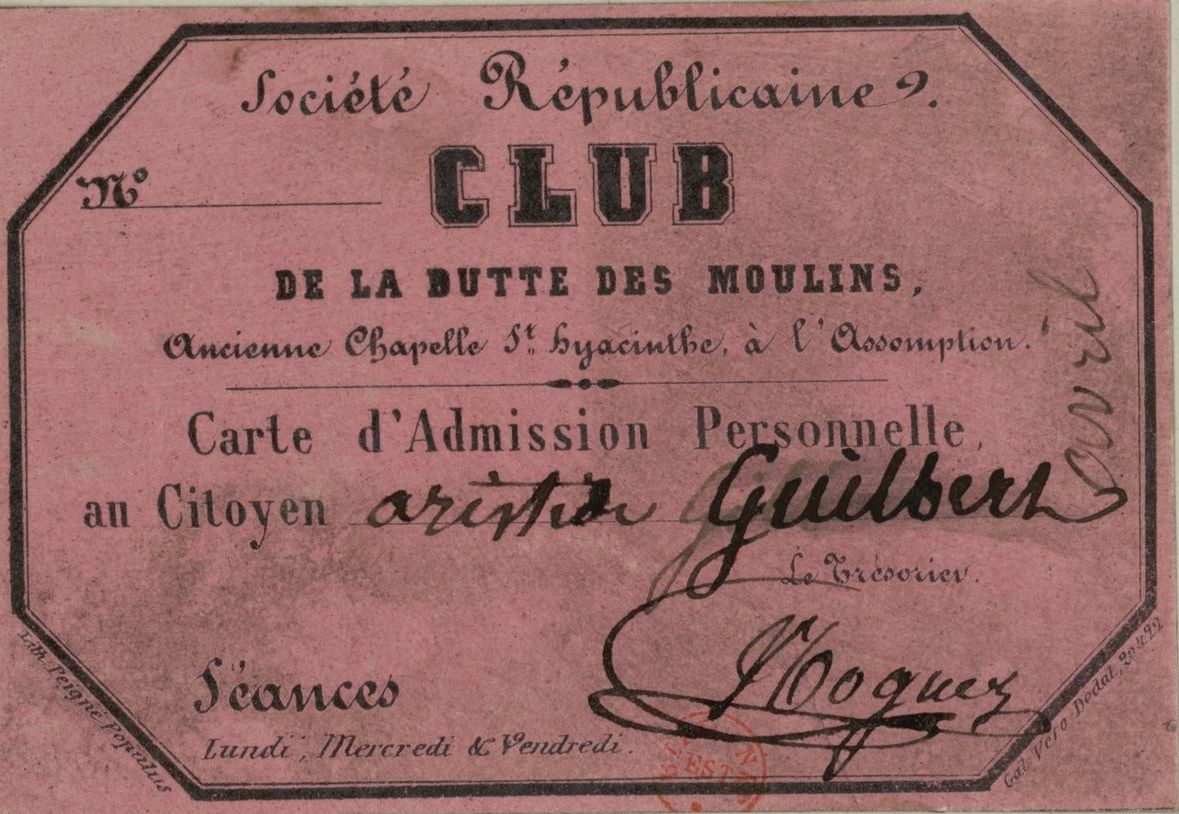 Société Républicaine.
Nº
CLUB
DE LA BUTTE DES MOULINS,
Ancienne Chapelle St. hyacinthe, à l'Assomption.
avril
Carte d'Admission Personnelle,
au Citoyen aristide Guilbert
Le Trésorier.
Hoquez
Séances
Lundi, Mercredi & Vendredi.
Lith. Peigné Popilus
Gal. Vero Dodat, 20 & 22
EST